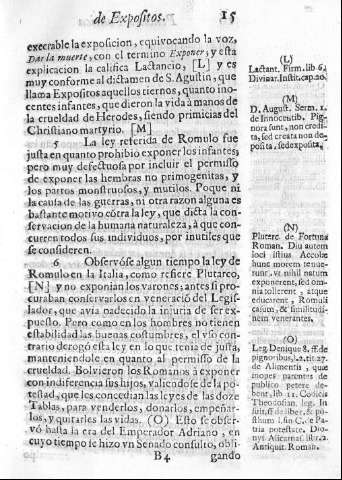 de Expositos. 15
execrable la exposicion, equivocando la voz,
Dar la muerte, con el termino Exponer; y esta
explicacion la califica Lactancio, [L] y es
muy conforme al dictamen de S. Agustin, que
llama Expositos aquellos tiernos, quanto ino-
centes infantes, que dieron la vida à manos de
la crueldad de Herodes, siendo primicias del
Christiano martyrio. [M]
La ley referida de Romulo fue
justa en quanto prohibiò exponer los infantes;
pero muy defectuosa por incluir el permisso
de exponer las hembras no primogenitas, y
los partos monstruosos, y mutilos. Poque ni
la causa de las guerras, ni otra razon alguna es
bastante motivo cõtra la ley, que dicta la con-
servacion de la humana naturaleza, à que con-
curren todos sus individuos, por inutiles que
se consideren.
6 Observóse algun tiempo la ley de
Romulo en la Italia, como refiere Plutarco,
[N] y no exponian los varones; antes si pro-
curaban conservarlos en veneraciõ del Legis-
lador, que avia padecido la injuria de ser ex-
puesto. Pero como en los hombres no tienen
estabilidad las buenas costumbres, el uso con-
trario derogó esta ley en lo que tenia de justa,
manteniendole en quanto al permisso de la
crueldad. Bolvieron los Romanos à exponer
con indiferencia sus hijos, valiendose de la po-
testad, que les concedian las leyes de las doze
Tablas, para venderlos, donarlos, empeñar-
los, y quitarles las vidas. (O) Esto se obser-
vó hasta la era del Emperador Adriano, en
cuyo tiempo se hizo un Senado consulto, obli-
B4 gando
(L)
Lactant. Firm. lib. 6.
Divinar. Instit. cap. 20.
(M)
D. August. Serm. 1.
de Innocentib. Pig-
nora sunt, non credi-
ta, sed creata non de-
posita, sed exposita.
(N)
Plutarc. de Fortuna
Roman. Diu autem
loci istius Accolæ
hunc morem tenue-
runt, ut nihil natum
exponerent, sed om-
nia tollerent, atque
educarent, Romuli
casum, & similitudi-
nem venerantes.
(O)
Leg. Denique 8. ff. de
pignoribus, l. 2. tit. 27.
de Alimentis, quæ
inopes parentes de
publico petere de-
bent, lib. 11. Codicis
Theodosian. leg. In
suis, ff. de liber. & pos-
thum. l. fin. C. de Pa-
tria potestate. Dio-
nys. Alicarnas. lib. 2.
Antiquit. Roman.